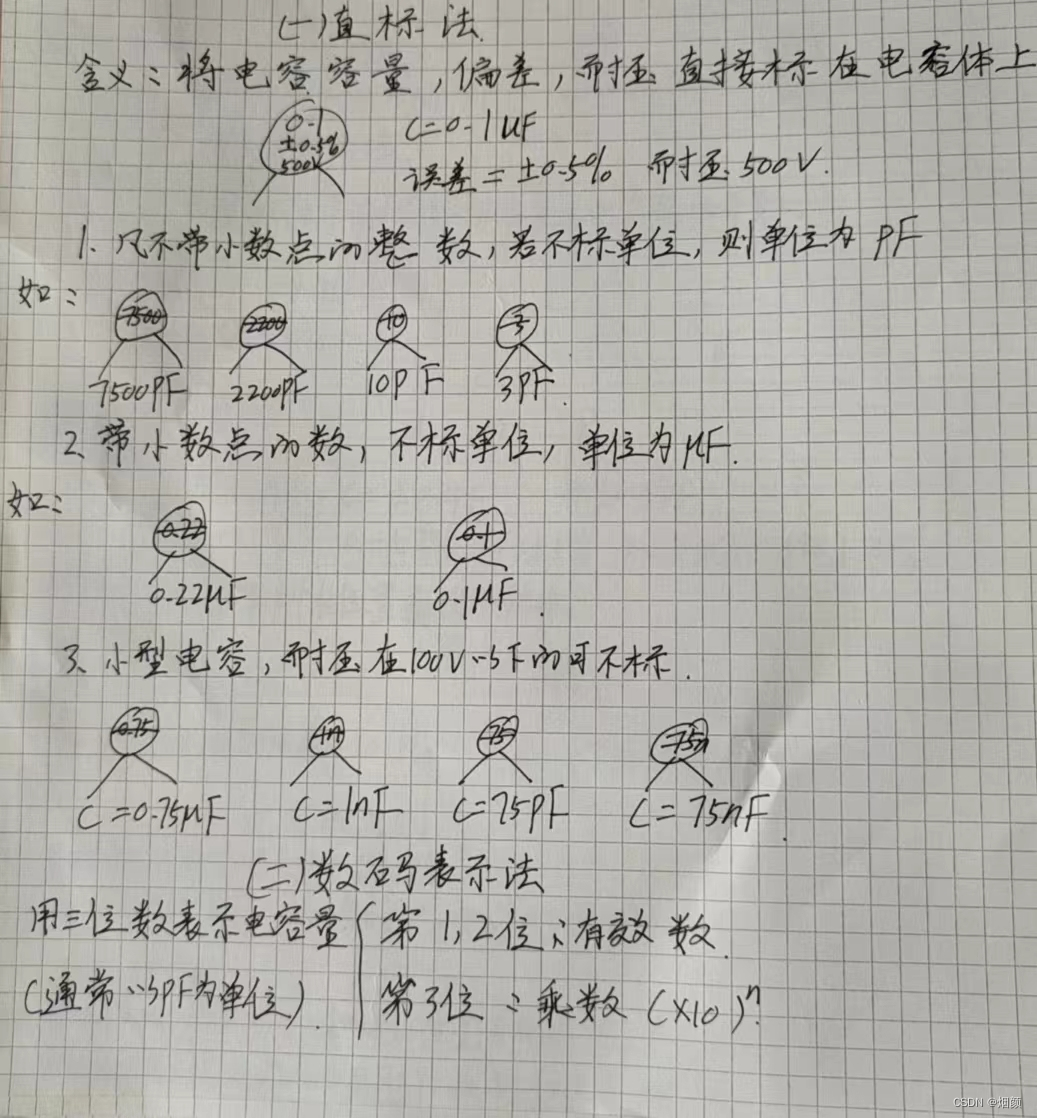 (一)直标法.
含义：将电容容量，偏差，耐压直接标在电容体上
0.1
±0.5%
500V
C=0.1μF
误差=±0.5% 耐压500V.
1. 凡不带小数点的整数，若不标单位，则单位为 PF
如：
7500 2200 10 3
7500PF 2200PF 10PF 3PF.
2、带小数点的数，不标单位，单位为μF.
如：
0.22 0.1
0.22μF 0.1μF.
3、小型电容，耐压在100V以下的可不标.
0.75 1n 75 75n
C=0.75μF C=1nF C=75PF C=75nF.
(二)数码表示法
用三位数表示电容量 第1,2位：有效数.
(通常以PF为单位). 第3位：乘数(×10)ⁿ.
CSDN @烟颜